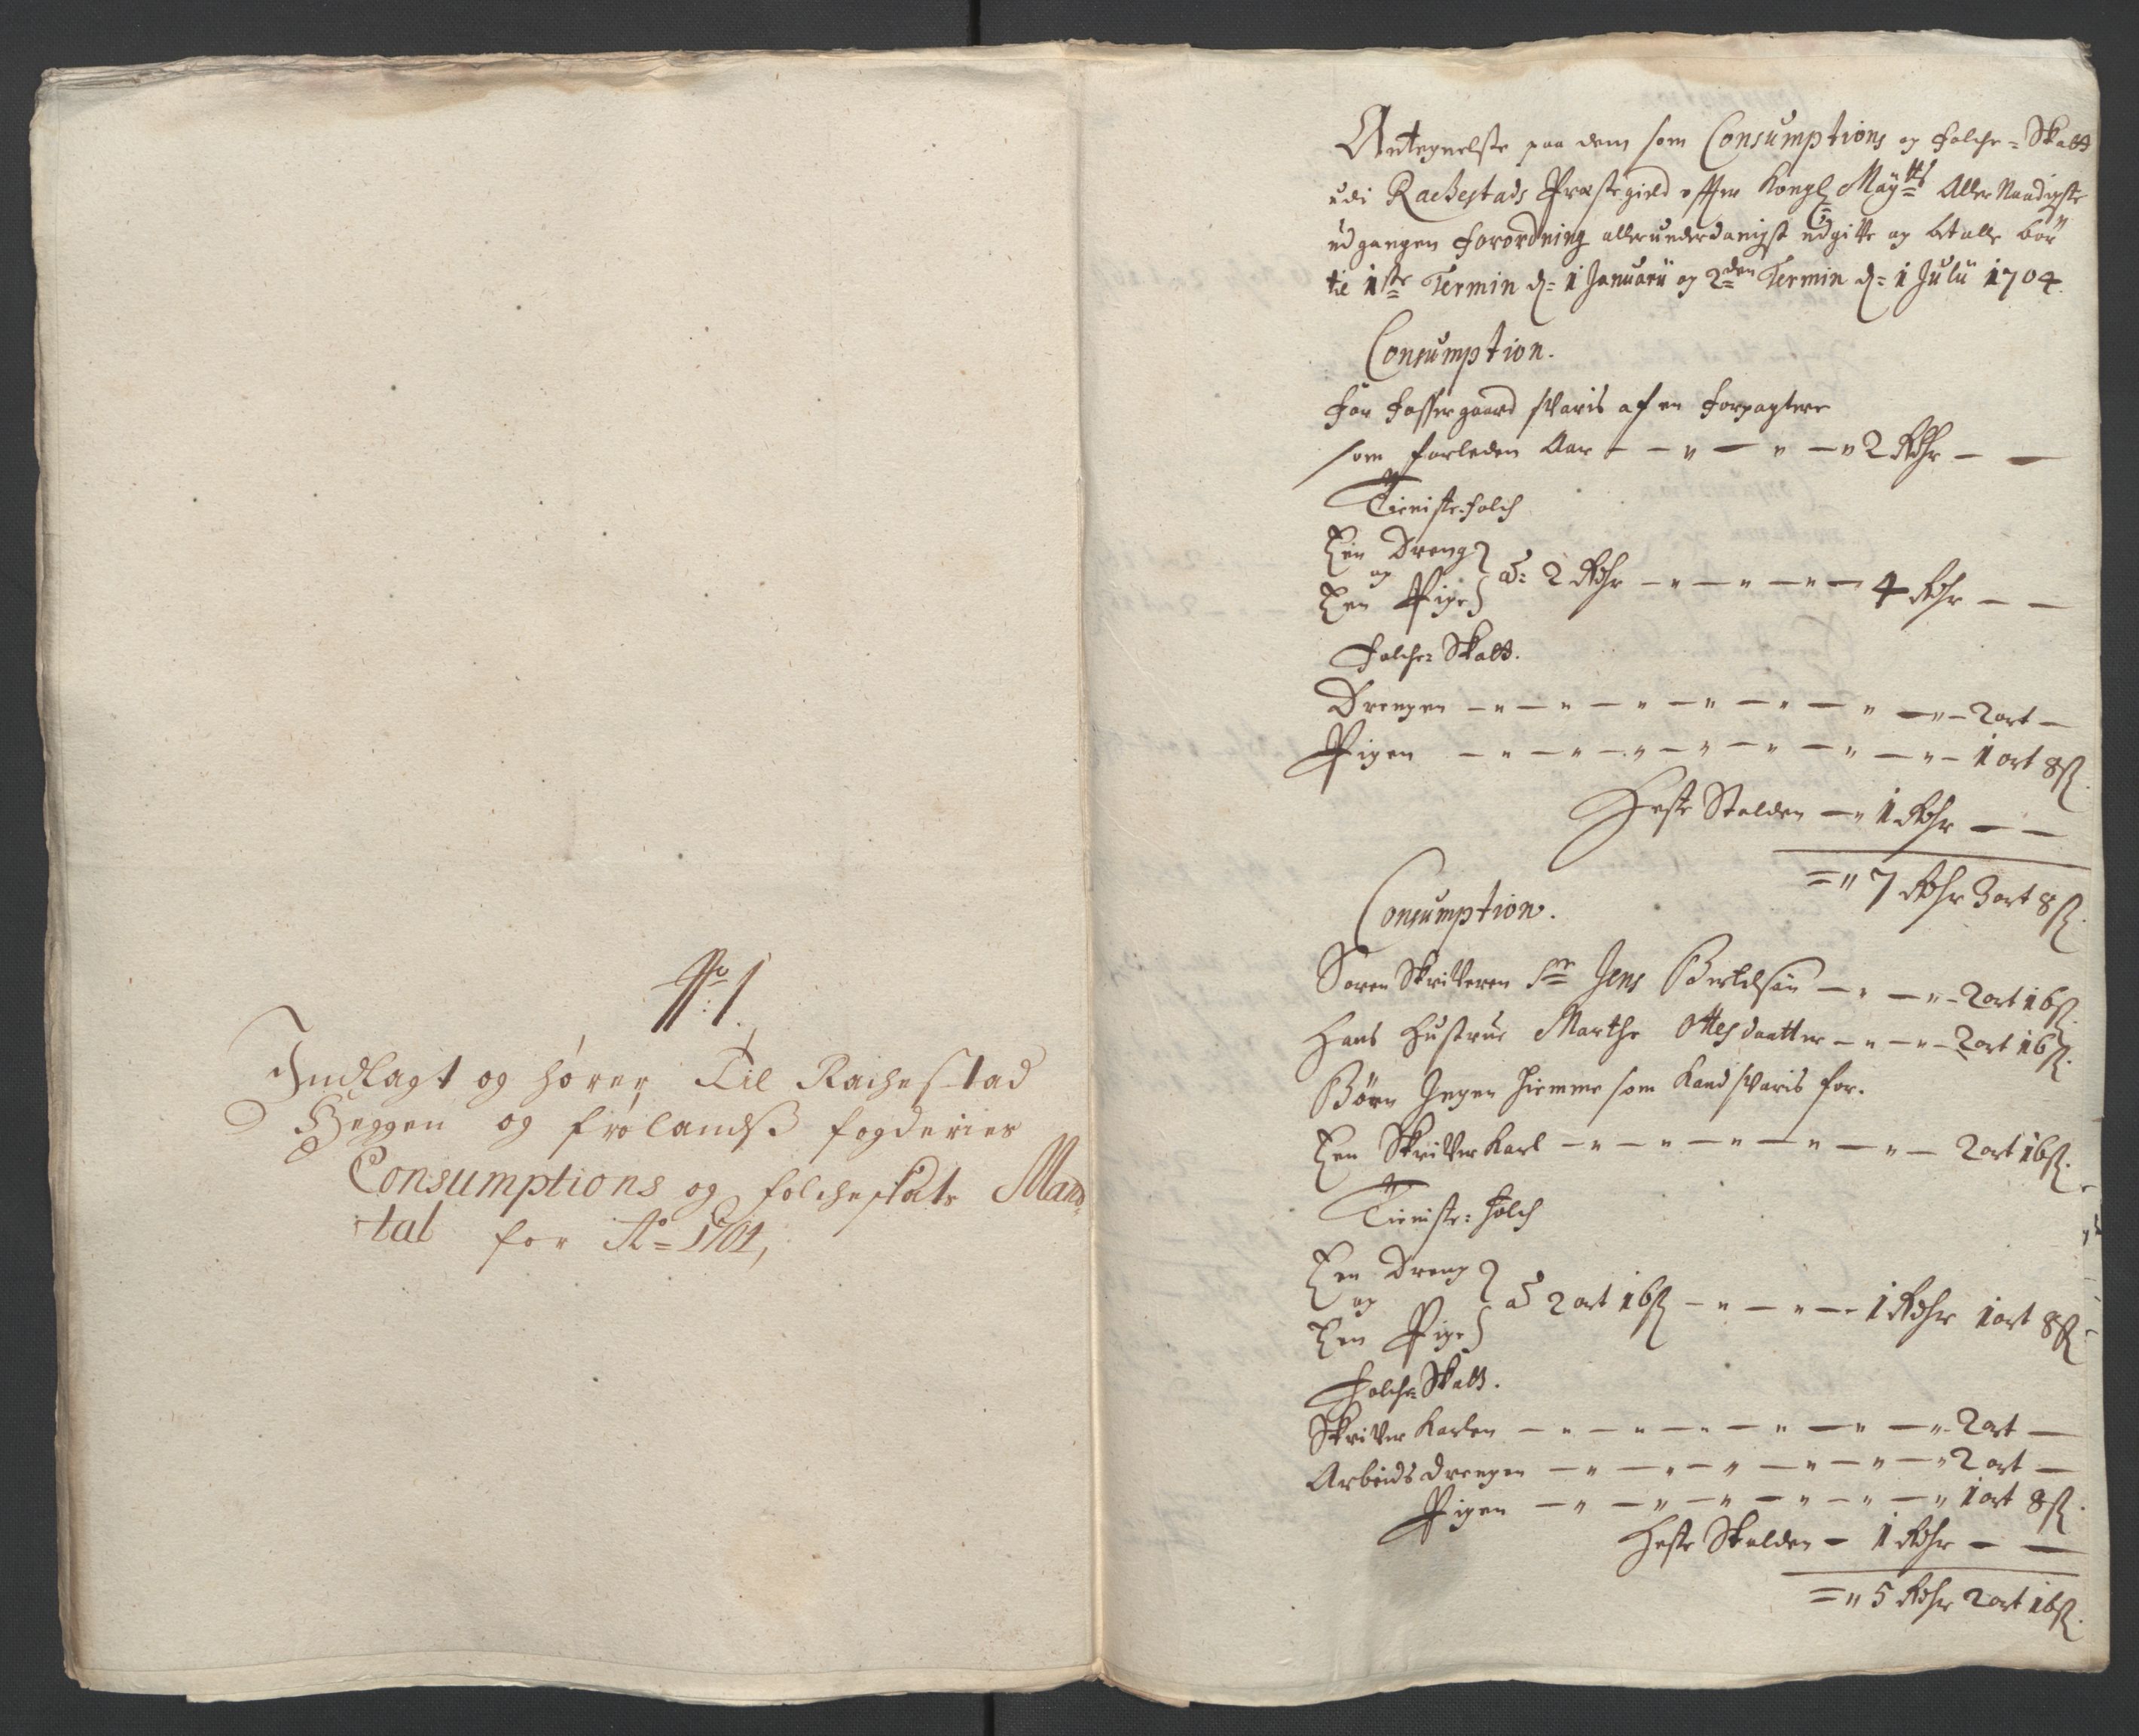 No 1.
Indlagt og hører Til Rachestad
Heggen og frølandß fogderies
Consumptions og folcheskats Mand
tal for Ao 1704,
Antegnelse paa dem som Consumptions og Folche=Skatt
udi Rachestads Præstegield effter Kongl May:tts Aller Naadigste
udgangen Forordning allerunderdanigst udgitte og betalle bör
til 1ste Termin d: 1 Januarii og 2den Termin d: 1 Julii 1704.
Consumption.
För Fossergaard svaris af en Forpagtere
som forleden Aar - - " - " - " 2 Rdhr - -
Tieniste Folch
Een Dreng
og
Een Pige
a: 2 Rdhr - " - " - " - 4 Rdhr - -
Folche=Skatt.
Drengen - " - " - " - " - " - " - " - 2 ort -
Pigen - " - " - " - " - " - " - " - 1 ort 8ß.
Heste Stalden - " 1 Rdhr - -
= " 7 Rdhr 3 ort 8ß.
Consumption.
Soren Skrifveren Sr Jens Bertelsön - " - " - 2 ort 16ß.
Hans Hustrue Marthe Ottesdaatter - " - " - 2 ort 16ß.
Börn Ingen hiemme som kand svaris for.
Een Skrifver Karl - " - " - " - " - " - 2 ort 16ß.
Tieniste=Folch
Een Dreng
og
Een Pige
a 2 ort 16ß - " - " - 1 Rdhr 1 ort 8ß
Folche=Skatt.
Skrifver Karlen - " - " - " - " - " - " 2 ort -
Arbeids drengen - " - " - " - " - " - " 2 ort -
Pigen - " - " - " - " - " - " 1 ort 8ß.
Heste Stalden - 1 Rdhr - -
= " 5 Rdhr 2 ort 16ß.